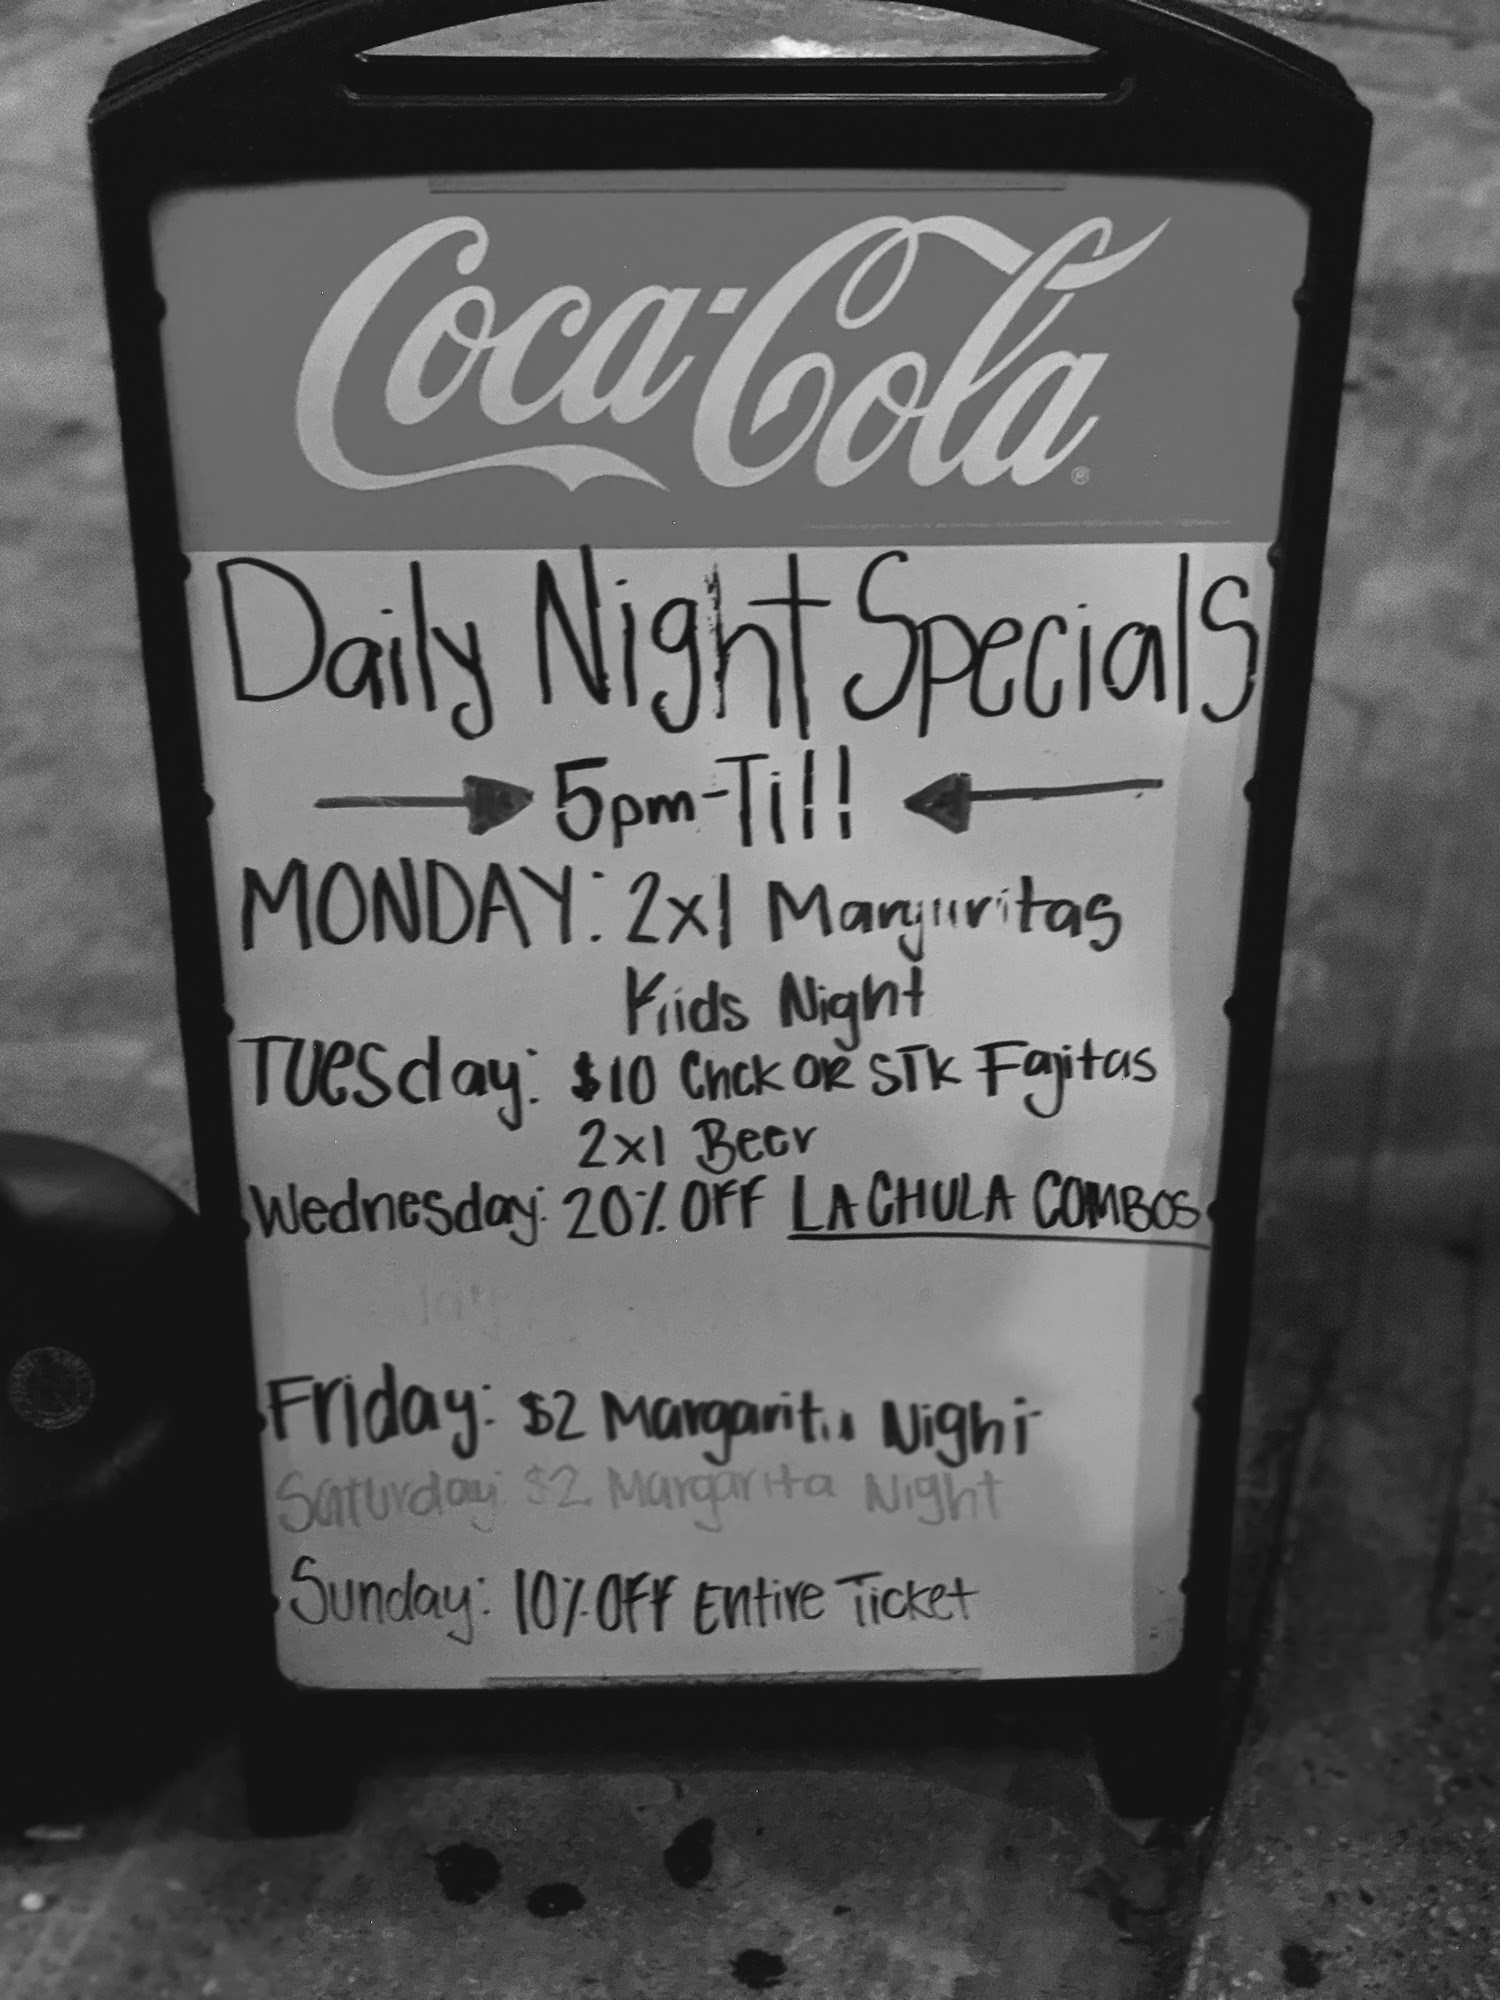 Coca-Cola
Daily Night Specials
5pm-Till!
MONDAY: 2x1 Margaritas
Kids Night
Tuesday: $10 Chck OR STK Fajitas
2x1 Beer
Wednesday: 20% OFF LA CHULA COMBOS
Friday: $2 Margarita Night
Saturday: $2 Margarita Night
Sunday: 10% OFF Entire Ticket